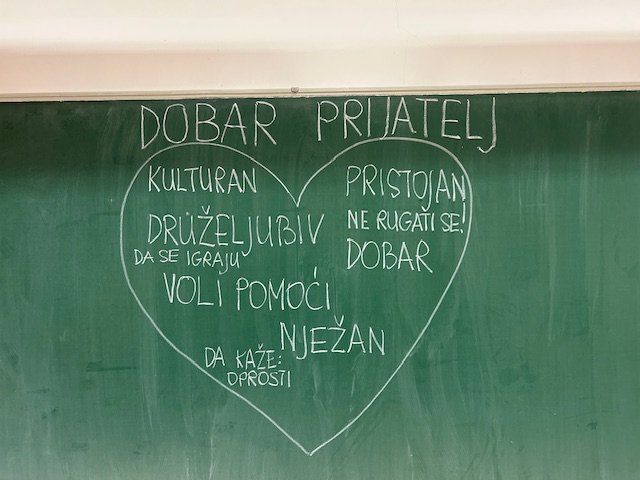 DOBAR PRIJATELJ
KULTURAN
DRUŽELJUBIV
DA SE IGRAJU
PRISTOJAN
NE RUGATI SE!
DOBAR
VOLI POMOĆI
NJEŽAN
DA KAŽE:
OPROSTI